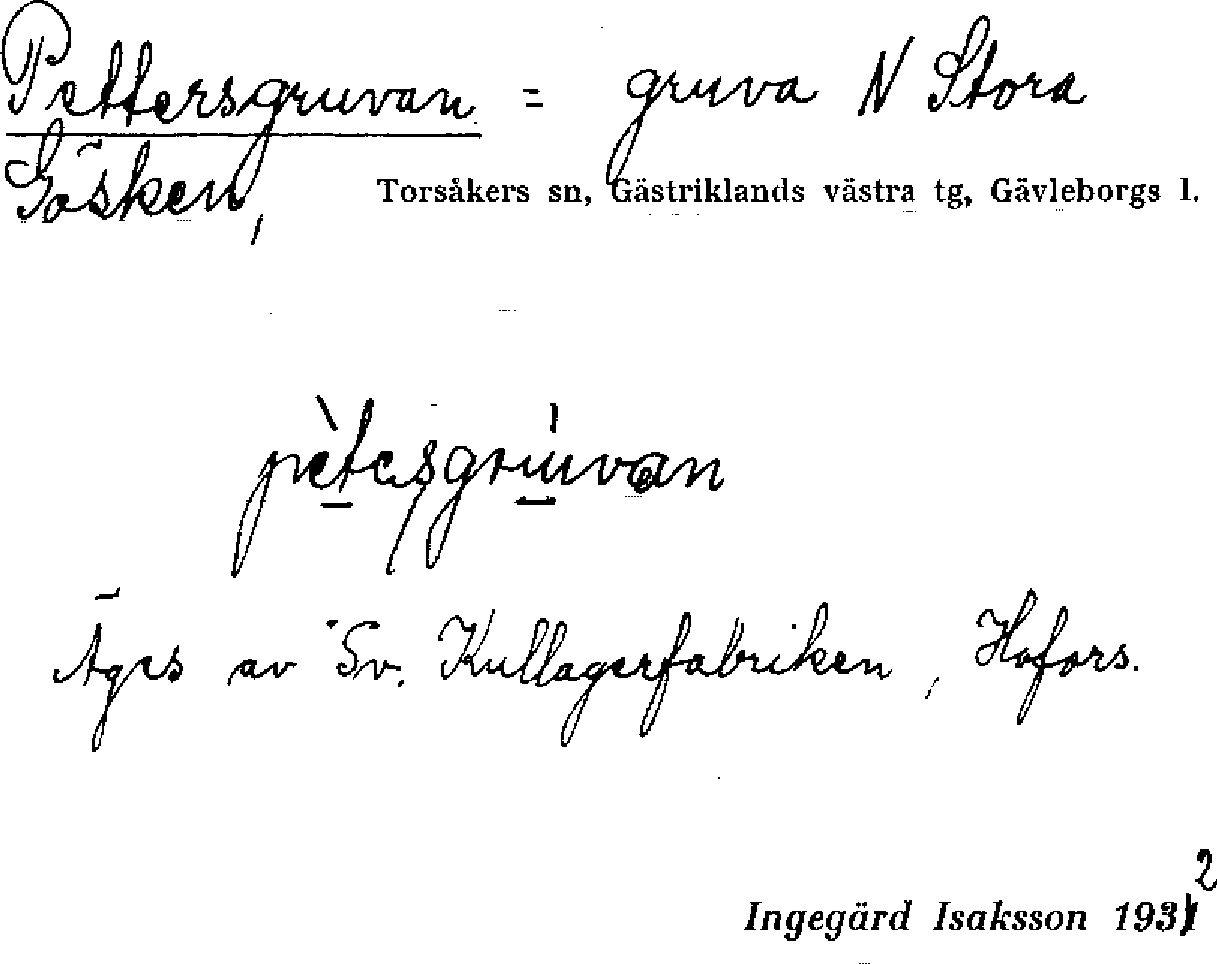 Pettersgruvan = gruva N Stora
Gösken, Torsåkers sn, Gästriklands västra tg, Gävleborgs l.
pètesgrúvan
Äges av Sv. Kullagerfabriken, Hofors.
Ingegärd Isaksson 1932